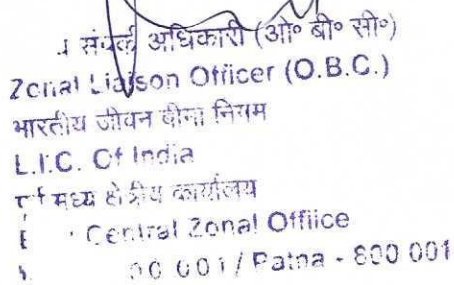 संपर्क अधिकारी (ओ॰ बी॰ सी॰)
Zonal Liaison Officer (O.B.C.)
भारतीय जीवन बीमा निगम
L.I.C. Of India
मध्य क्षेत्रीय कार्यालय
Central Zonal Offiice
00 001 / Patna - 800 001